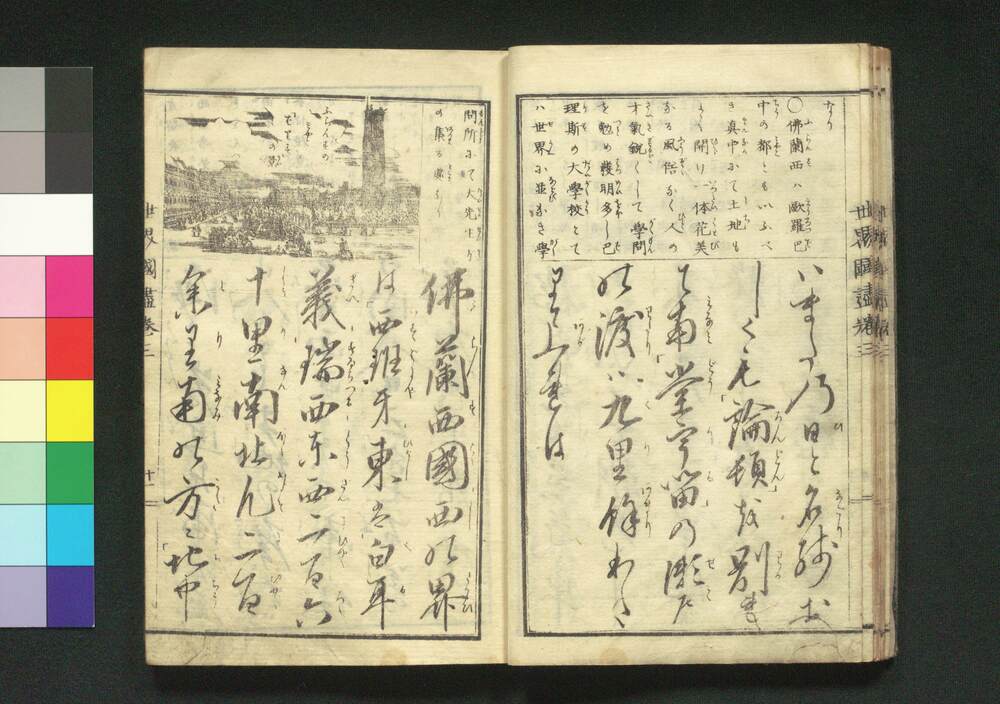 なり
〇佛蘭西ハ歐羅巴
中の都ともいふべ
き真中にて土地も
よく開け一体花美
なる風俗なく人の
才氣鋭くして學問
を勉め發明多し巴
理斯の大學校とて
ハ世界に並なき學
いまその日と名殘お
しくも「論頓」を別れ
て南「堂宇留」の瀬戸
の渡ハ九里餘わた
りて上れは
問所にて大先生方
の集る處なり
ふらんすの
都
佛蘭西國西の界
は「西班牙」東は「白耳
義」「瑞西」東西二百六
十里南北凡二百
余里南の方ハ「地中
世界國盡卷二
十一